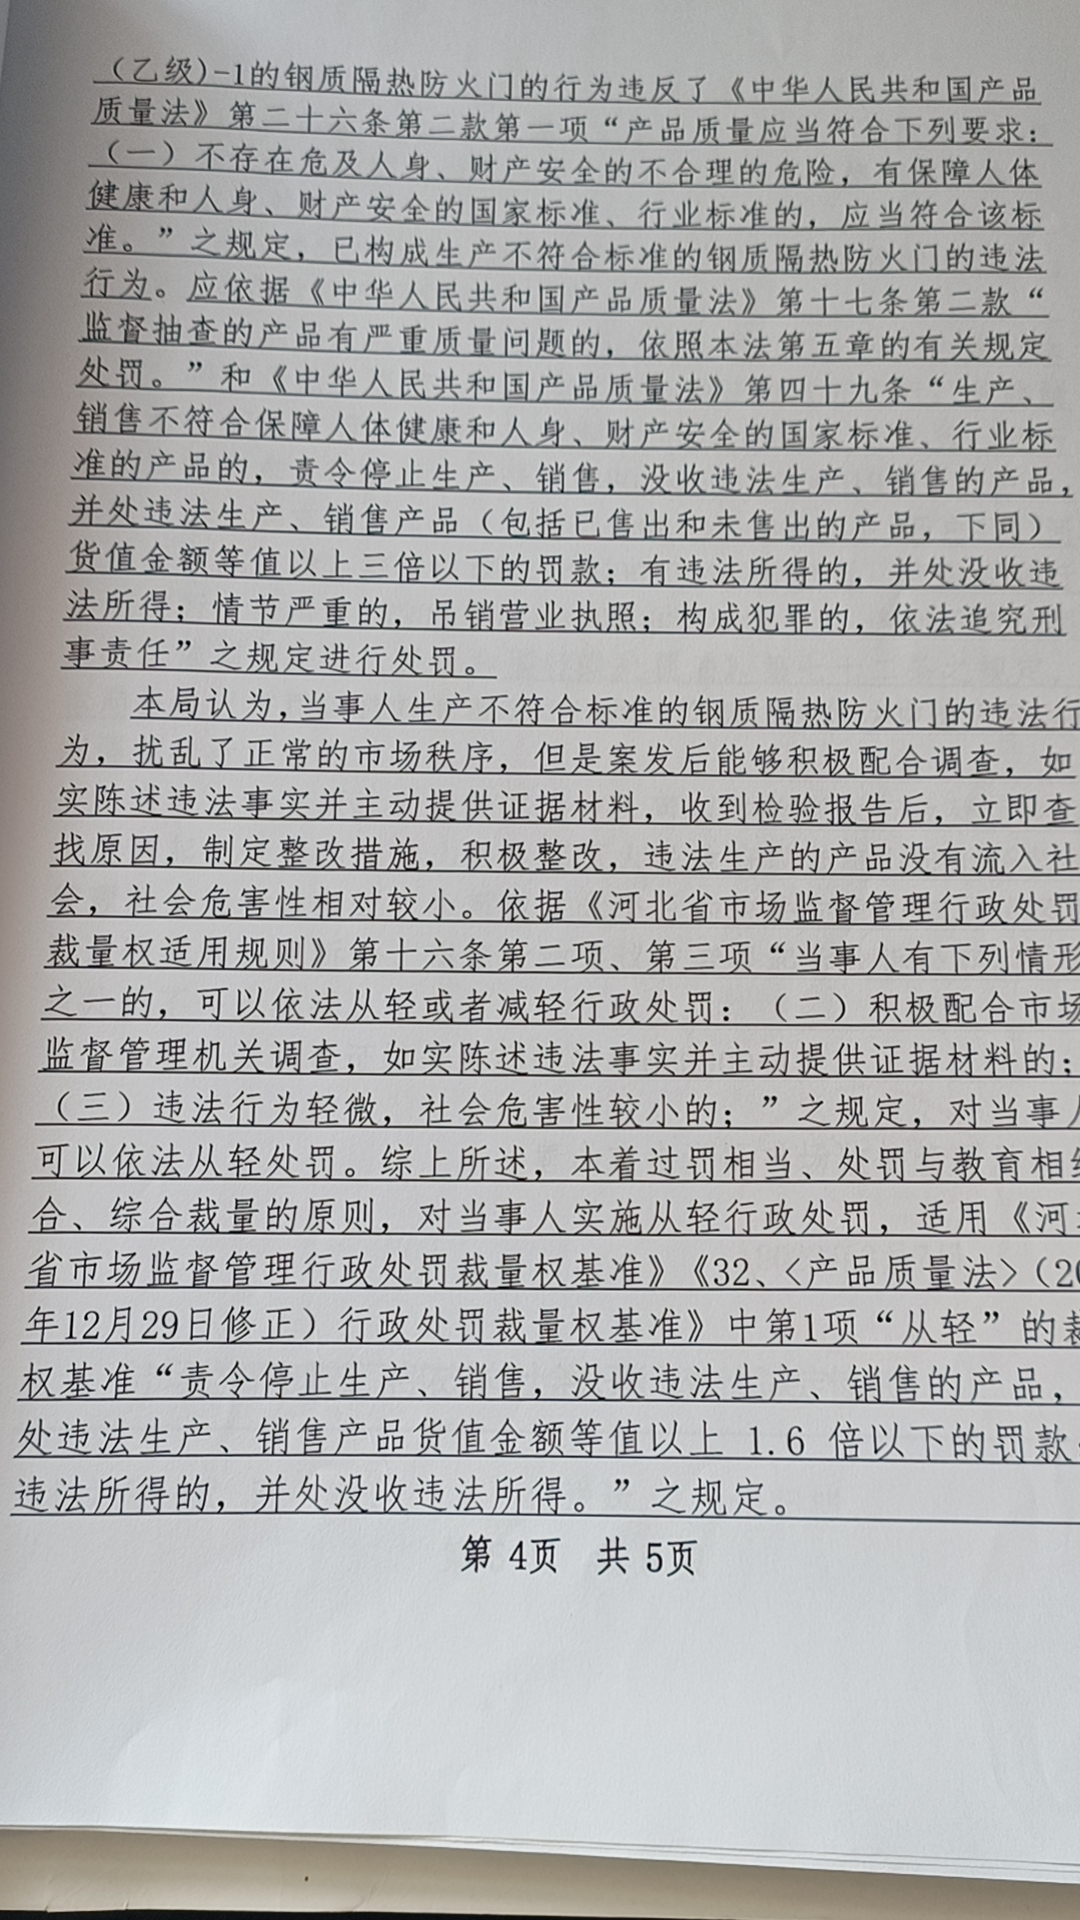 （乙级)-1的钢质隔热防火门的行为违反了《中华人民共和国产品
质量法》第二十六条第二款第一项“产品质量应当符合下列要求：
（一）不存在危及人身、财产安全的不合理的危险，有保障人体
健康和人身、财产安全的国家标准、行业标准的，应当符合该标
准。”之规定，已构成生产不符合标准的钢质隔热防火门的违法
行为。应依据《中华人民共和国产品质量法》第十七条第二款“
监督抽查的产品有严重质量问题的，依照本法第五章的有关规定
处罚。”和《中华人民共和国产品质量法》第四十九条“生产、
销售不符合保障人体健康和人身、财产安全的国家标准、行业标
准的产品的，责令停止生产、销售，没收违法生产、销售的产品，
并处违法生产、销售产品（包括已售出和未售出的产品，下同）
货值金额等值以上三倍以下的罚款；有违法所得的，并处没收违
法所得；情节严重的，吊销营业执照；构成犯罪的，依法追究刑
事责任”之规定进行处罚。
本局认为,当事人生产不符合标准的钢质隔热防火门的违法行
为，扰乱了正常的市场秩序，但是案发后能够积极配合调查，如
实陈述违法事实并主动提供证据材料，收到检验报告后，立即查
找原因，制定整改措施，积极整改，违法生产的产品没有流入社
会，社会危害性相对较小。依据《河北省市场监督管理行政处罚
裁量权适用规则》第十六条第二项、第三项“当事人有下列情形
之一的，可以依法从轻或者减轻行政处罚：（二）积极配合市场
监督管理机关调查，如实陈述违法事实并主动提供证据材料的；
（三）违法行为轻微，社会危害性较小的；”之规定，对当事人
可以依法从轻处罚。综上所述，本着过罚相当、处罚与教育相结
合、综合裁量的原则，对当事人实施从轻行政处罚，适用《河
省市场监督管理行政处罚裁量权基准》《32、<产品质量法>（20
年12月29日修正）行政处罚裁量权基准》中第1项“从轻”的裁
权基准“责令停止生产、销售，没收违法生产、销售的产品，
处违法生产、销售产品货值金额等值以上 1.6 倍以下的罚款
违法所得的，并处没收违法所得。”之规定。
第 4页 共 5页